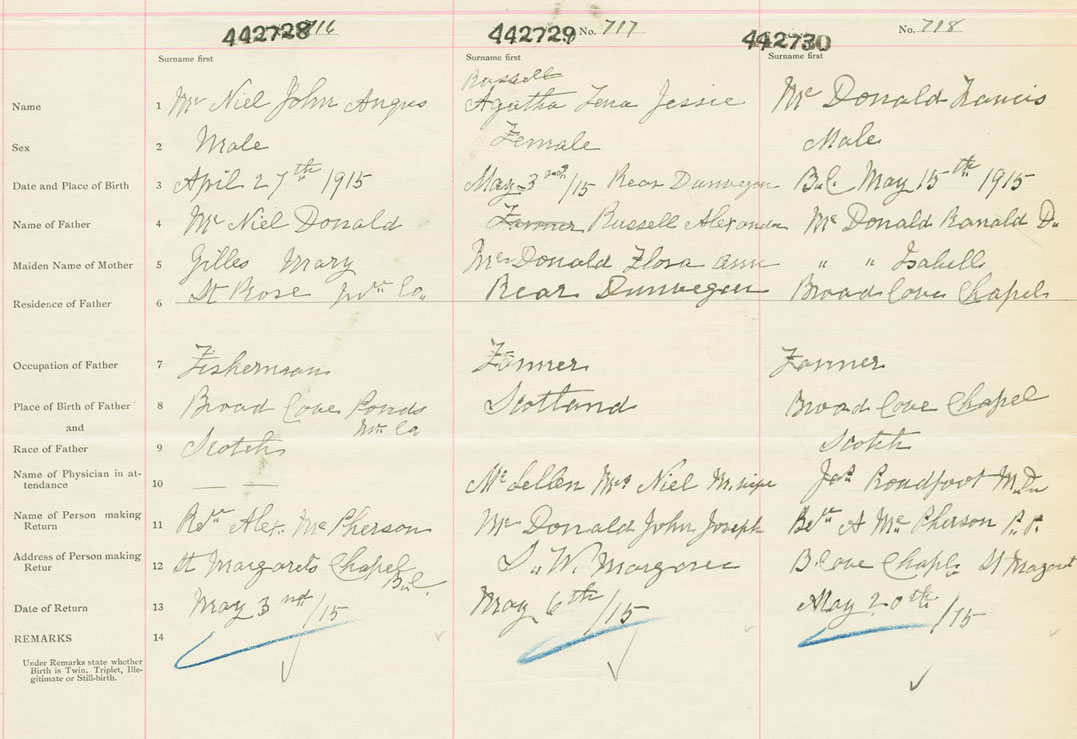 442728 716 442729 No. 717 442730 No. 718
Surname first Surname first Surname first
Russell
Name 1 Mc Niel John Angus Agatha Lena Jessie Mc Donald Francis
Sex 2 Male Female Male
Date and Place of Birth 3 April 27th 1915 May 3rd/15 Rear Dunvegan B.C. May 15th 1915
Name of Father 4 Mc Niel Donald Farmer Russell Alexander Mc Donald Ranald D.
Maiden Name of Mother 5 Gilles Mary Mc Donald Flora Ann " " Isabell
Residence of Father 6 St Rose Inv. Co. Rear Dunvegan Broad Cove Chapel
Occupation of Father 7 Fisherman Farmer Farmer
Place of Birth of Father 8 Broad Cove Ponds Scotland Broad Cove Chapel
and Inv. Co.
Race of Father 9 Scotch Scotch
Name of Physician in at-
tendance 10 — — Mc Lellan Mrs Niel M. wife Jas Proudfoot M.D.
Name of Person making
Return 11 Revd Alex. Mc Pherson Mc Donald John Joseph Revd A Mc Pherson P.P.
Address of Person making
Retur 12 St Margarets Chapel S.W. Margaree B. Cove Chapl St Margaret
B.C.
Date of Return 13 May 3rd/15 May 6th/15 May 20th/15
REMARKS 14
Under Remarks state whether
Birth is Twin, Triplet, Ille-
gitimate or Still-birth.